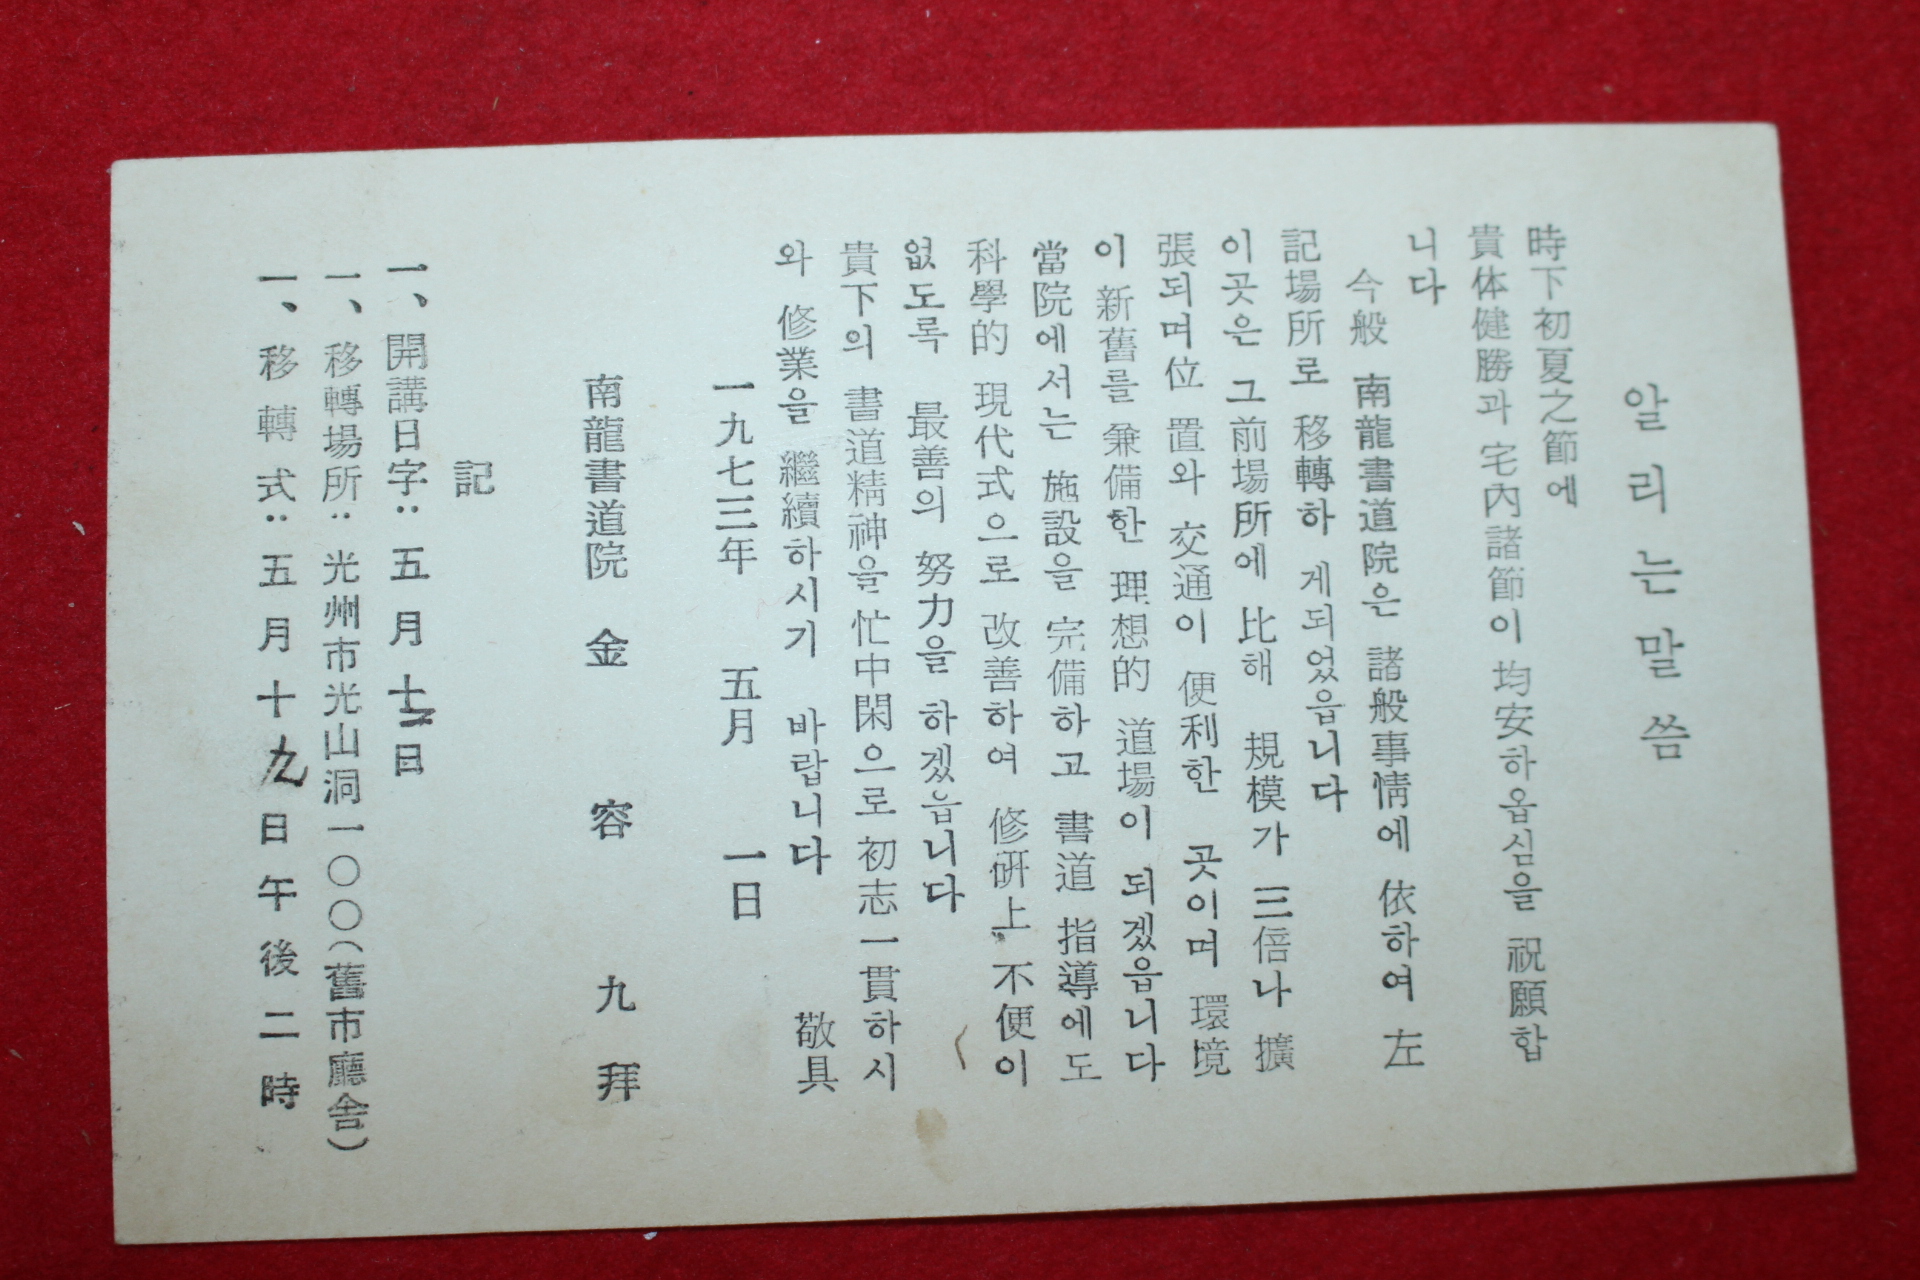 알리는말씀
時下初夏之節에
貴体健勝과 宅內諸節이 均安하옵심을 祝願합
니다
今般 南龍書道院은 諸般事情에 依하여 左
記場所로 移轉하 게되었읍니다
이곳은 그前場所에 比해 規模가 三倍나 擴
張되며位 置와 交通이 便利한 곳이며 環境
이 新舊를 兼備한 理想的 道場이 되겠읍니다
當院에서는 施設을 完備하고 書道 指導에도
科學的 現代式으로 改善하여 修硏上 不便이
없도록 最善의 努力을 하겠읍니다
貴下의 書道精神을 忙中閑으로 初志一貫하시
와 修業을 繼續하시기 바랍니다 敬具
一九七三年 五月 一日
南龍書道院 金 容 九 拜
記
一、開講日字: 五月 十 日
一、移轉場所: 光州市光山洞一〇〇(舊市廳舍)
一、移轉式: 五月十九日午後二時